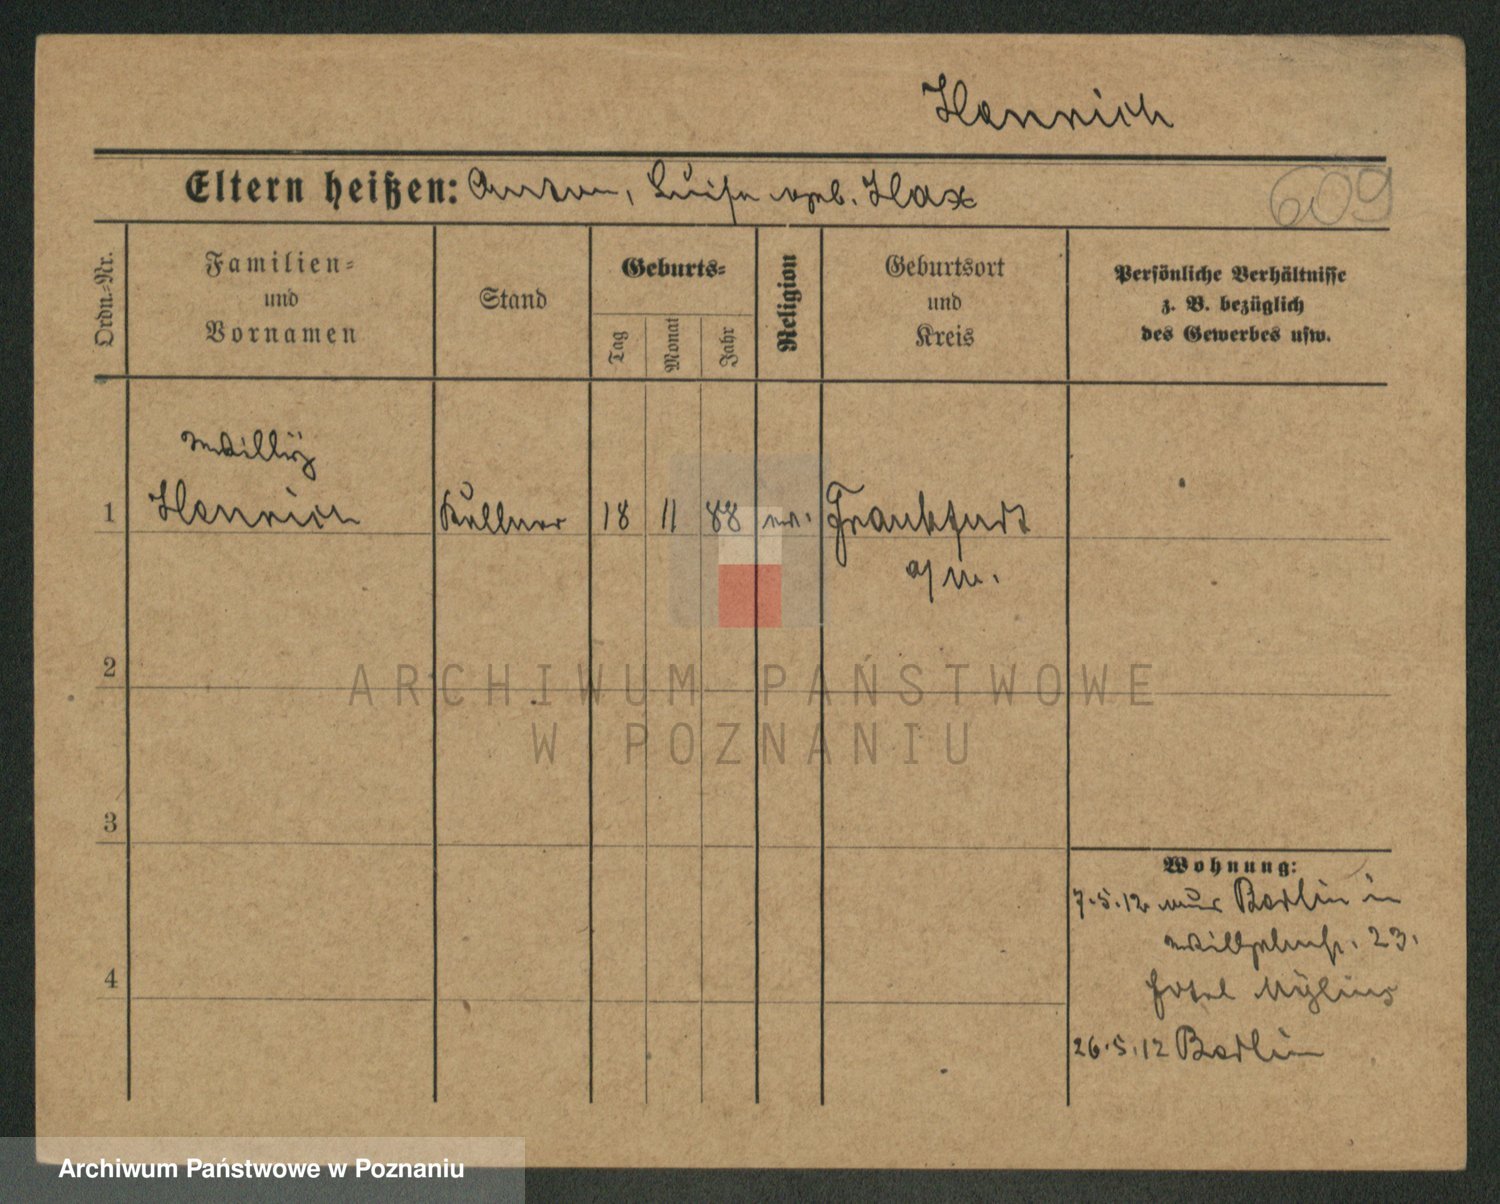 Henrich
Eltern heißen: Anton, Luise geb. Hax
609
Ordn.-Nr.
Familien-
und
Vornamen
Stand
Geburts-
Tag
Monat
Jahr
Religion
Geburtsort
und
Kreis
Persönliche Verhältnisse
z. B. bezüglich
des Gewerbes usw.
Willÿ
1 Henrich Kellner 18 11 88 ev. Frankfurt
a/M.
2
3
4
Wohnung:
7.5.12 aus Berlin in
Wilhelmstr. 23.
Hotel Mÿlius
26.5.12 Berlin
ARCHIWUM PAŃSTWOWE
W POZNANIU
Archiwum Państwowe w Poznaniu